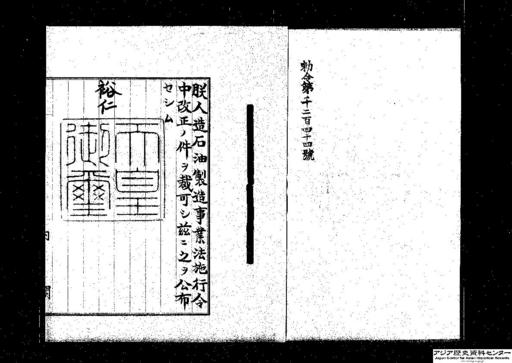 勅令第千二百四十四號
朕人造石油製造事業法施行令
中改正ノ件ヲ裁可シ茲ニ之ヲ公布
セシム
裕仁
天皇
御璽
内閣
アジア歴史資料センター
Japan Center for Asian Historical Records